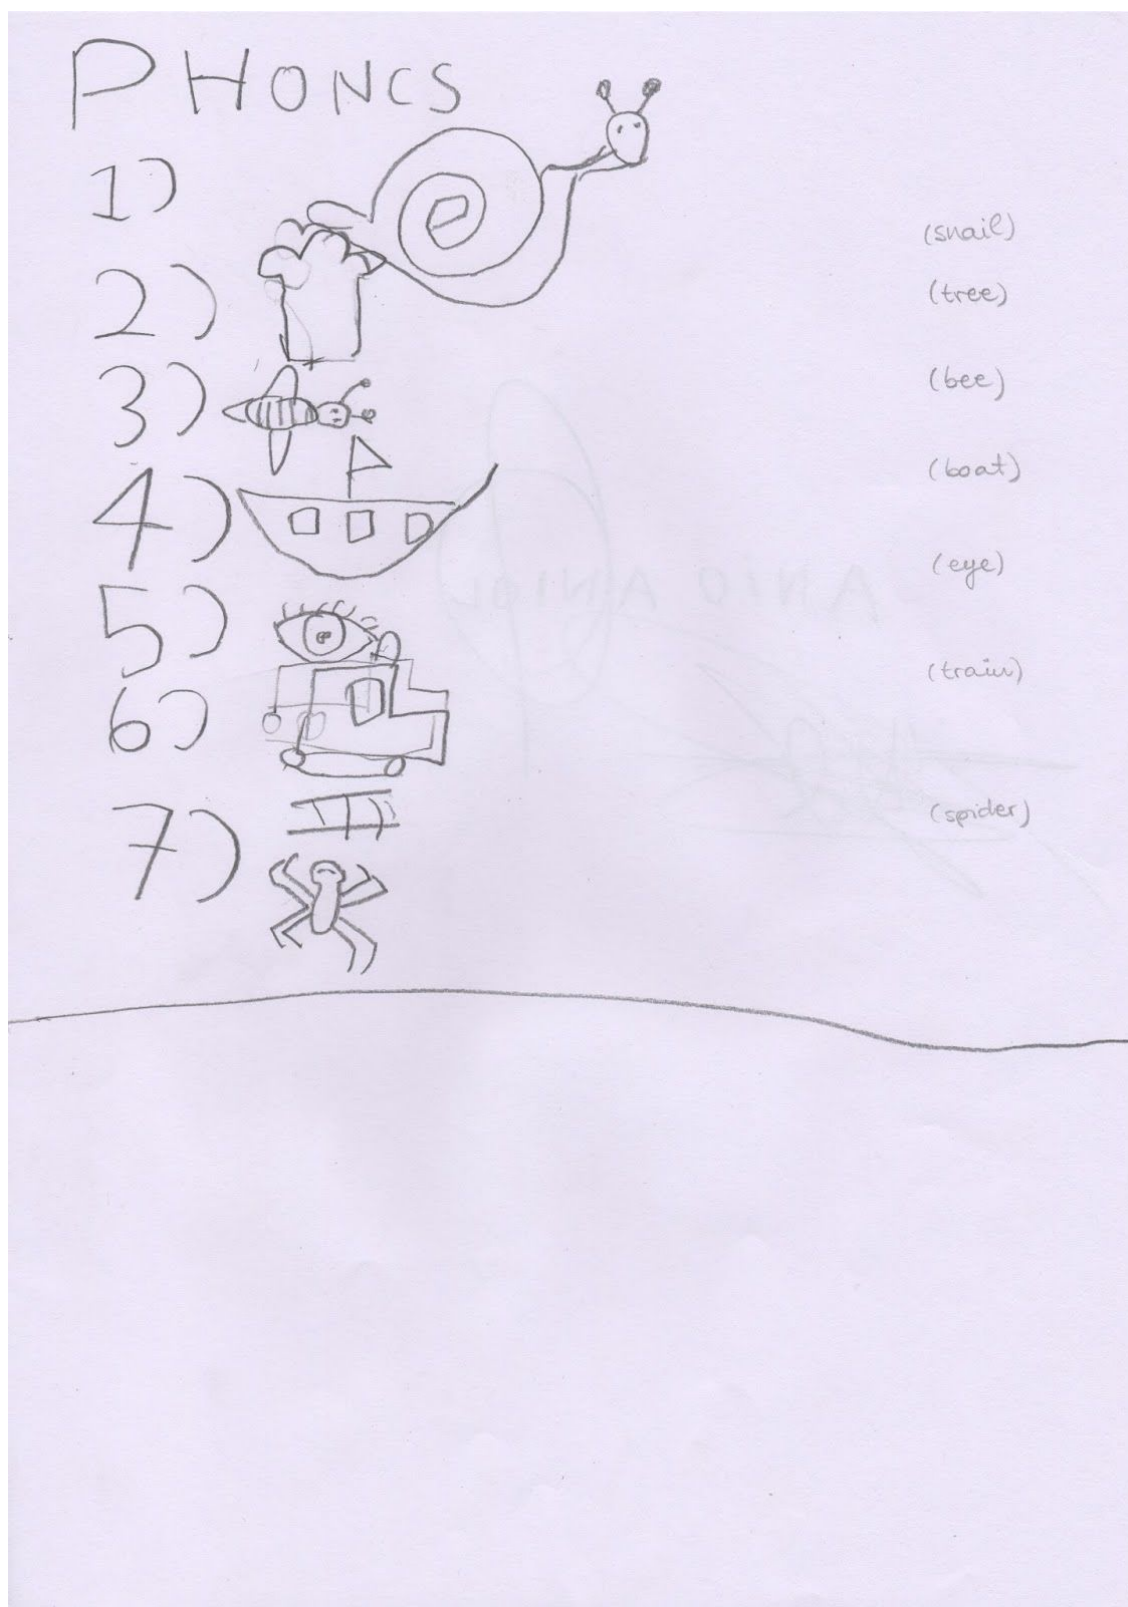 PHONCS
1) (snail)
2) (tree)
3) (bee)
4) (boat)
5) (eye)
6) (train)
7) (spider)